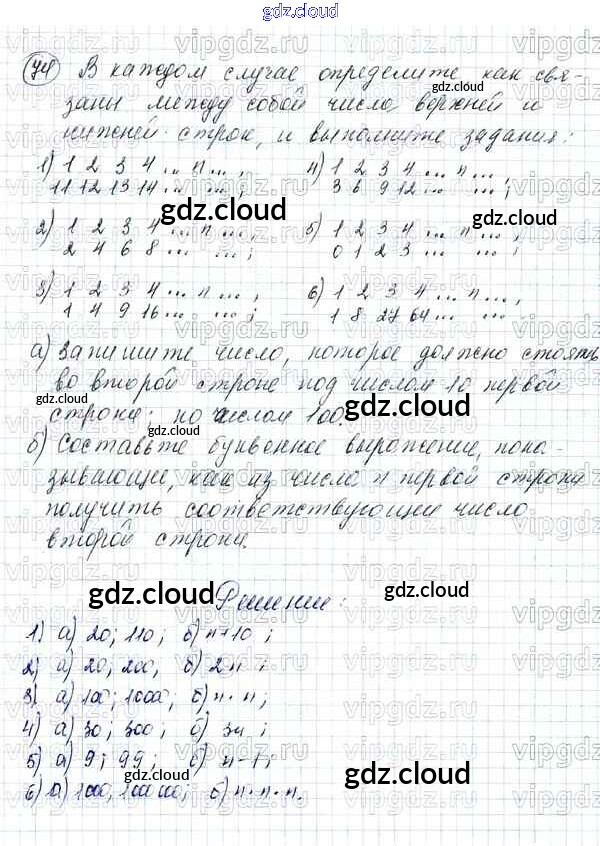 gdz.cloud
74) В каждом случае определите как свя-
заны между собой числа верхней и
нижней строк, и выполните задания:
1) 1 2 3 4 ... n ... ,
11 12 13 14 ... ... ;
4) 1 2 3 4 ... n ... ,
3 6 9 12 ... ... ;
2) 1 2 3 4 ... n ... ,
2 4 6 8 ... ... ;
5) 1 2 3 4 ... n ... ,
0 1 2 3 ... ... ;
3) 1 2 3 4 ... n ... ,
1 4 9 16 ... ... ;
6) 1 2 3 4 ... n ... ,
1 8 27 64 ... ... ;
а) Запишите число, которое должно стоять
во второй строке под числом 10 первой
строки; по числом 100.
б) Составьте буквенное выражение, пока-
зывающие, как из числа n первой строки
получить соответствующий число
второй строки.
Решение:
1) а) 20; 110; б) n+10;
2) а) 20, 200, б) 2n;
3) а) 100; 1000, б) n·n;
4) а) 30; 300; б) 3n;
5) а) 9; 99; б) n-1;
6) а) 1000, 100000; б) n·n·n.
gdz.cloud
gdz.cloud
gdz.cloud
gdz.cloud
gdz.cloud
gdz.cloud
gdz.cloud
gdz.cloud
gdz.cloud
gdz.cloud
gdz.cloud
gdz.cloud
gdz.cloud